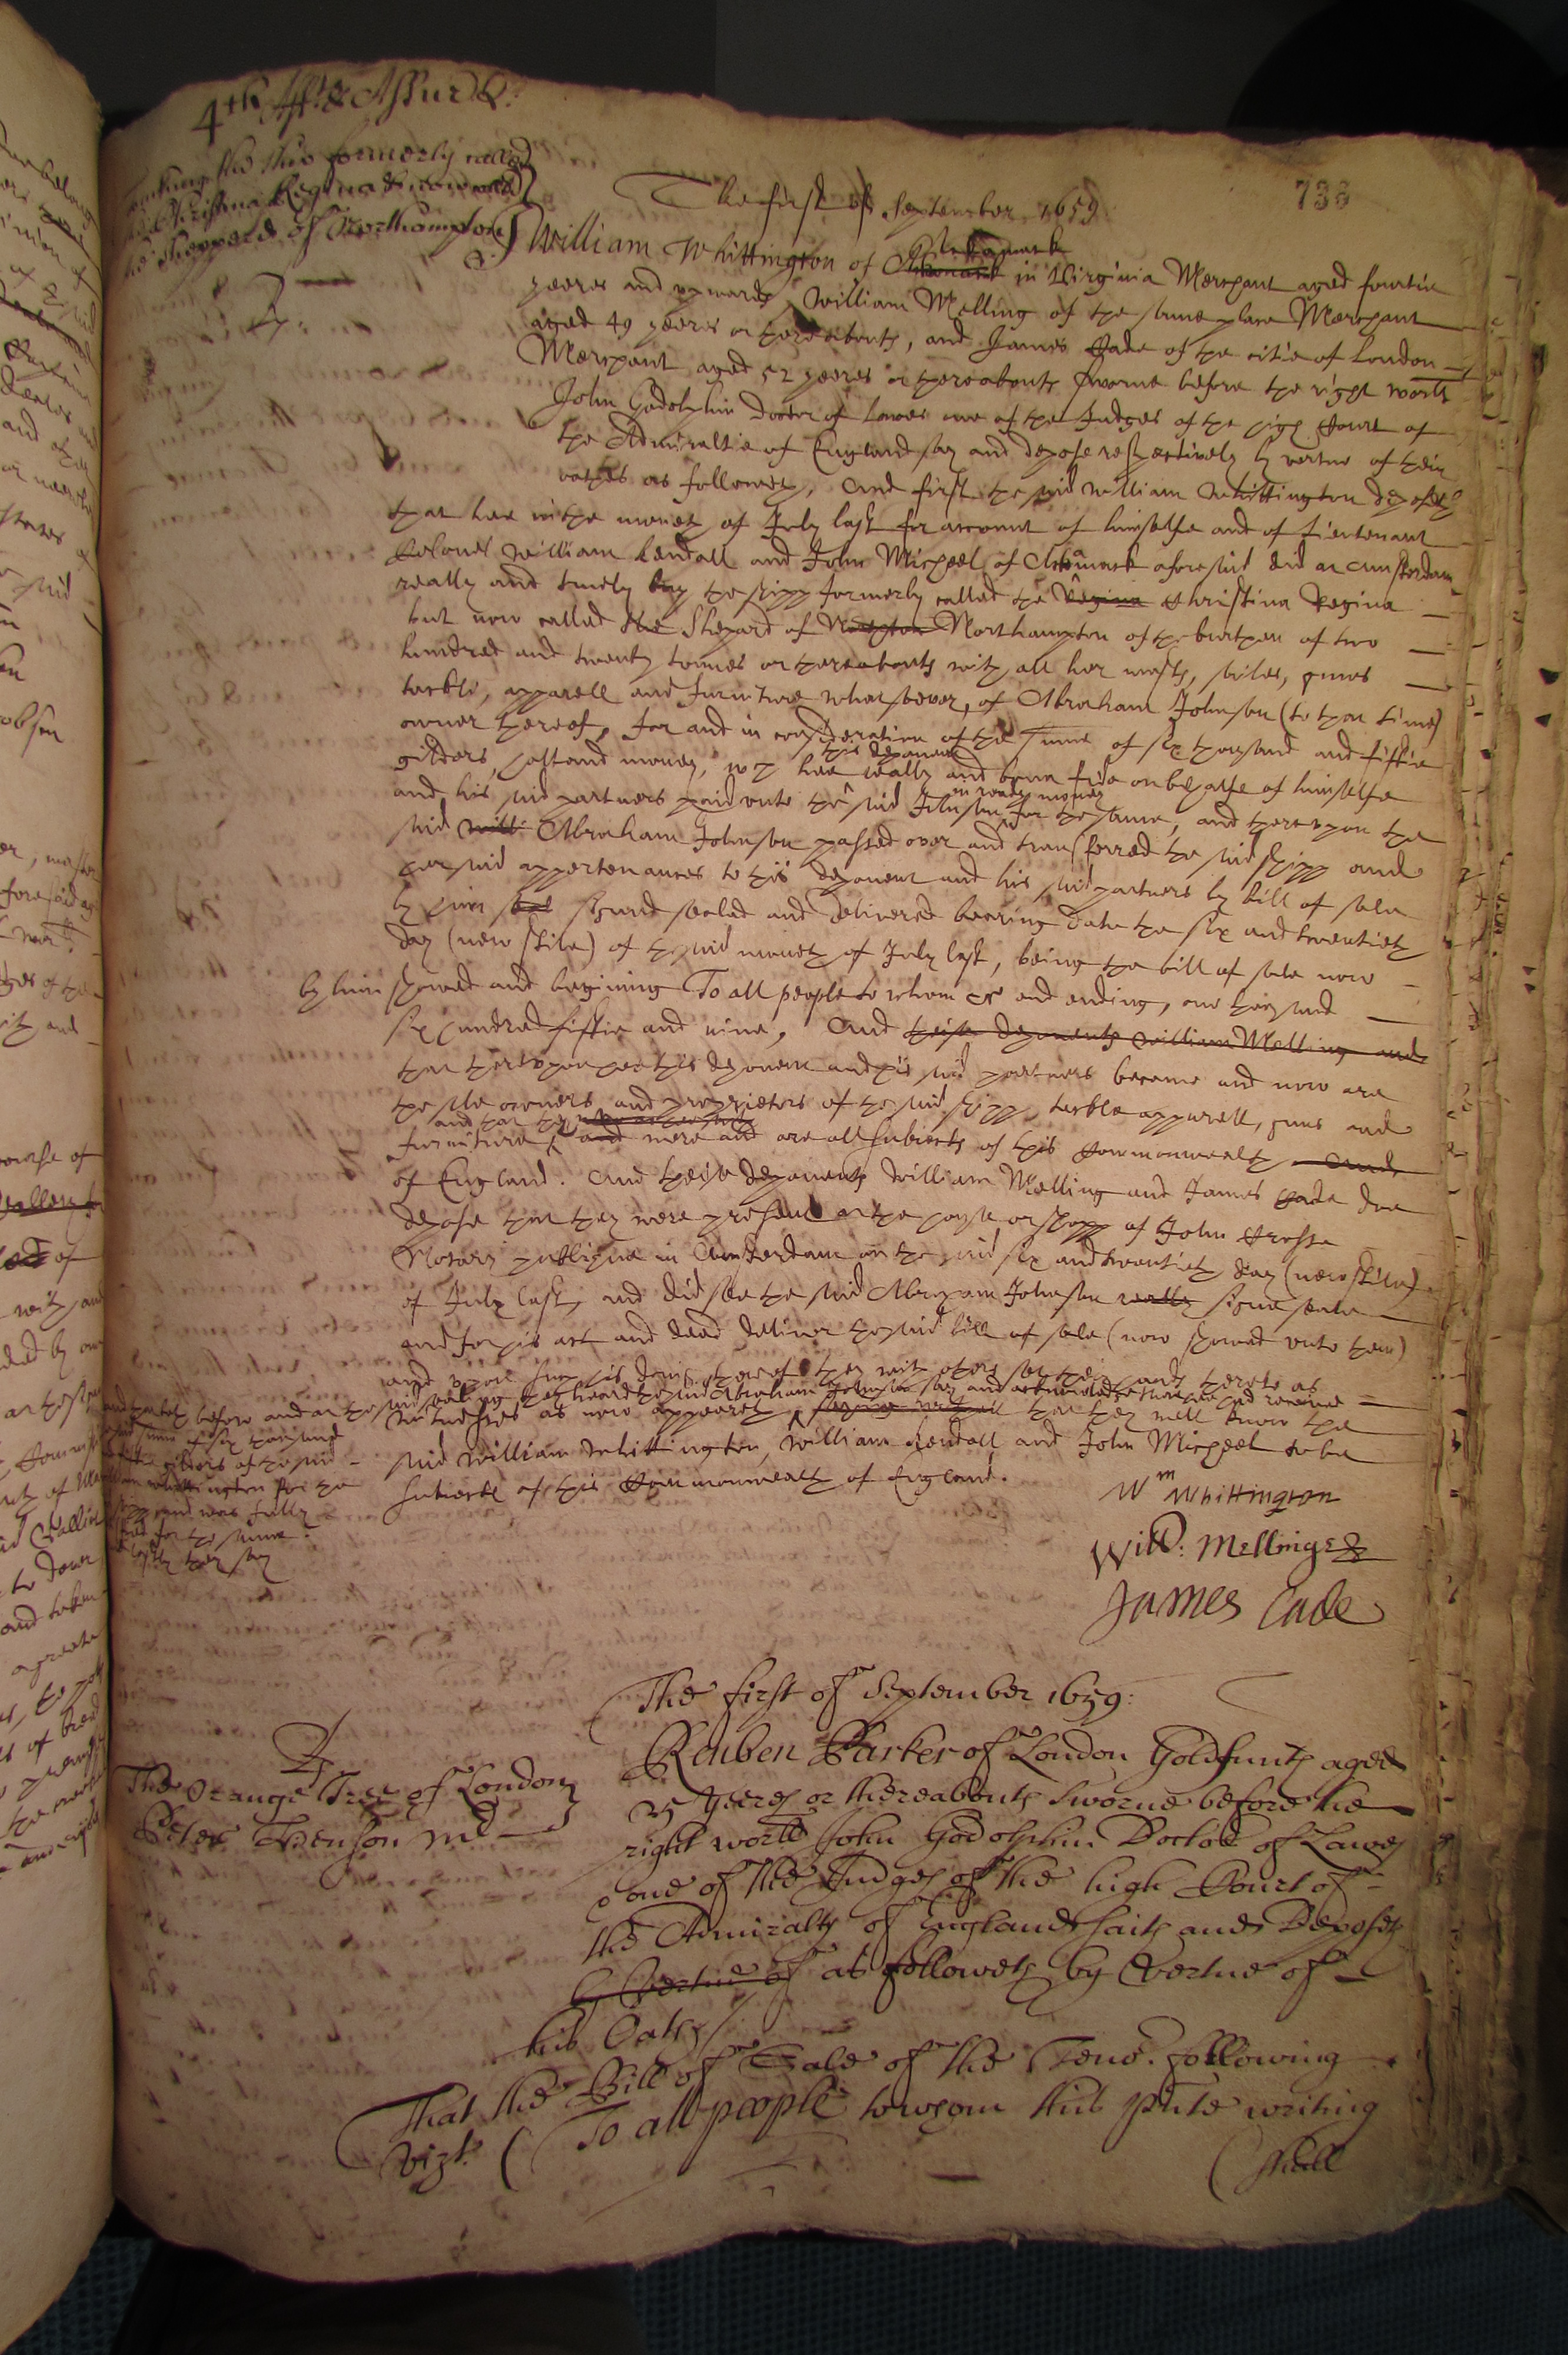 4th
738
the shippe formerly called
Christina Regina & now called
the Sheppard of Northampton
The first of September 1659
William Whittington of Achamack in Virginia Merchant aged fourtie
yeeres and upwards, William Melling of the same place Merchant
aged 49 yeeres or thereabouts, and James Cade of the citie of London
Merchant aged 52 yeeres or thereabouts sworne before the right worll
John Godolphin Doctor of Lawes one of the Judges of the high Court of
the Admiraltie of England say and depose respectively by vertue of their
oathes as followeth, And first the said William Whittington deposeth
that hee in the moneth of July last for account of himselfe and of Lieutenant
Colonel William Kendall and John Micheel of Achamack aforesaid did at Amsterdam
really and truely buy the shipp formerly called the Regina Christina Regina
but now called the Shepard of Northampton of the burthen of two
hundred and twenty tonnes or thereabouts with all her masts, sailes, gunes
tackle, apparell and furniture whatsoever, of Abraham Johnson (to that time)
owner thereof, for and in consideration of the summe of six thousand and fiftie
gilders, holland money, wch hee really and bona fide on behalfe of himselfe
this deponent
and his said partners paid unto the said Johnson for the same, and thereupon the
in ready money
said Abraham Johnson passed over and transferred the said shipp and
her said appertenances to this deponent and his said partners by bill of sale
by him signed sealed and delivered bearing date the six and twentieth
day (new stile) of the said moneth of July last, being the bill of sale now
by him showed and begining To all people to whom &c and ending, one thousand
six hundred fiftie and nine, And theise deponents William Melling and
that thereupon hee this deponent and his said partners became and now are
the sole owners and proprietors of the said shipp, tackle apparell, guns and
and that they
furniture, and were and are all subiects of this Commonwealth and
of England. And theise deponents William Melling and James Cade doe
depose that they were present at the house or shopp of John Crosse
Notary publique in Amsterdam on the said six and twentieth day (new stile)
of July last, and did see the said Abraham Johnson really signe seale
and for his act and deed deliver the said bill of sale (now showed unto them)
and upon his doing thereof they with others set their hands thereto as
witnesses as now appeareth, that they well know the
and before and at the said sealing they heard the said Abraham Johnson say and acknowledge that hee had received
summe of six thousand
gilders of the said
Whittington for the
shipp and was fully
paid for the same.
they say
said William Whittington, William Kendall and John Micheel to be
subiects of this Commonwealth of England.
Wm Whittington
Will: Mellinge
James Cade
The first of September 1659:
The Orange Tree of London
Peter
Reuben Parker of London Goldsmith aged
35 yeeres or thereabouts sworne before the
right worll John Godolphin Doctor of Lawes
one of the Judges of the high Court of
the Admiralty of England saith and Deposeth
by Vertue of as followeth by Vertue of
his Oath
That the Bill of Sale of the Teno. following
vizt. (To all people to whom this pnte writing
shall